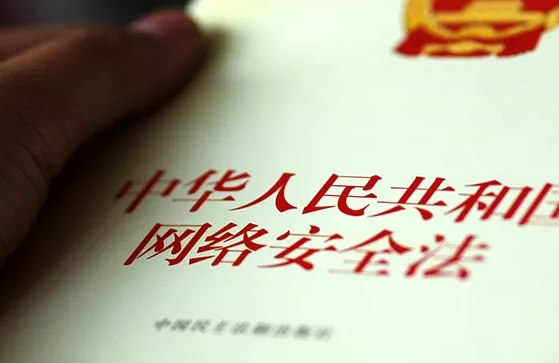 中华人民共和国
网络安全法
中国民主法制出版社